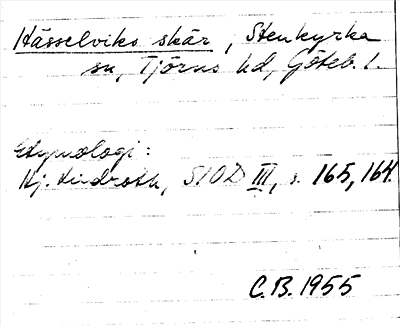 Hässelviks skär, Stenkyrka
sn, Tjörns hd, Göteb. l.
Etymologi:
Hj. Lindroth, SIOD III, s. 165, 164.
C.B. 1955